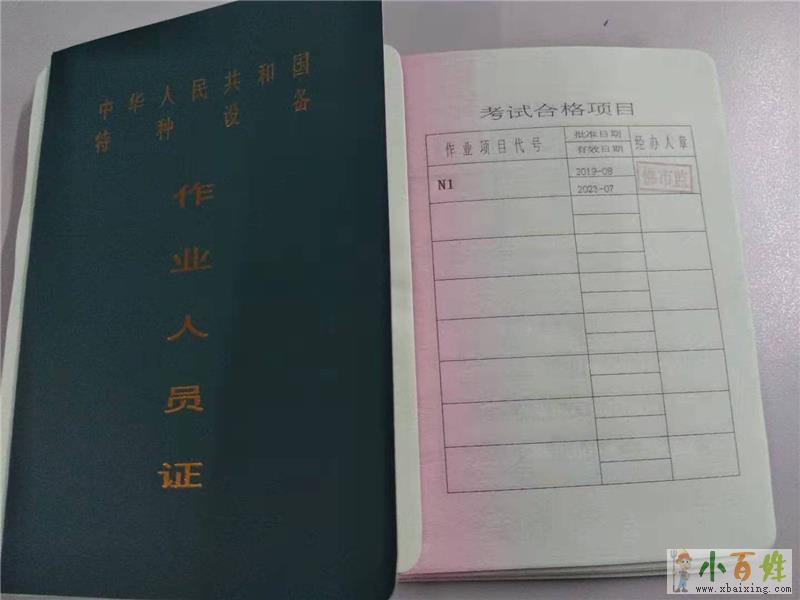 中华人民共和国
特种设备
作业人员证
考试合格项目
作业项目代号
批准日期
有效日期
经办人章
N1
2019-08
2023-07
佛市监
小百姓
www.xbaixing.com